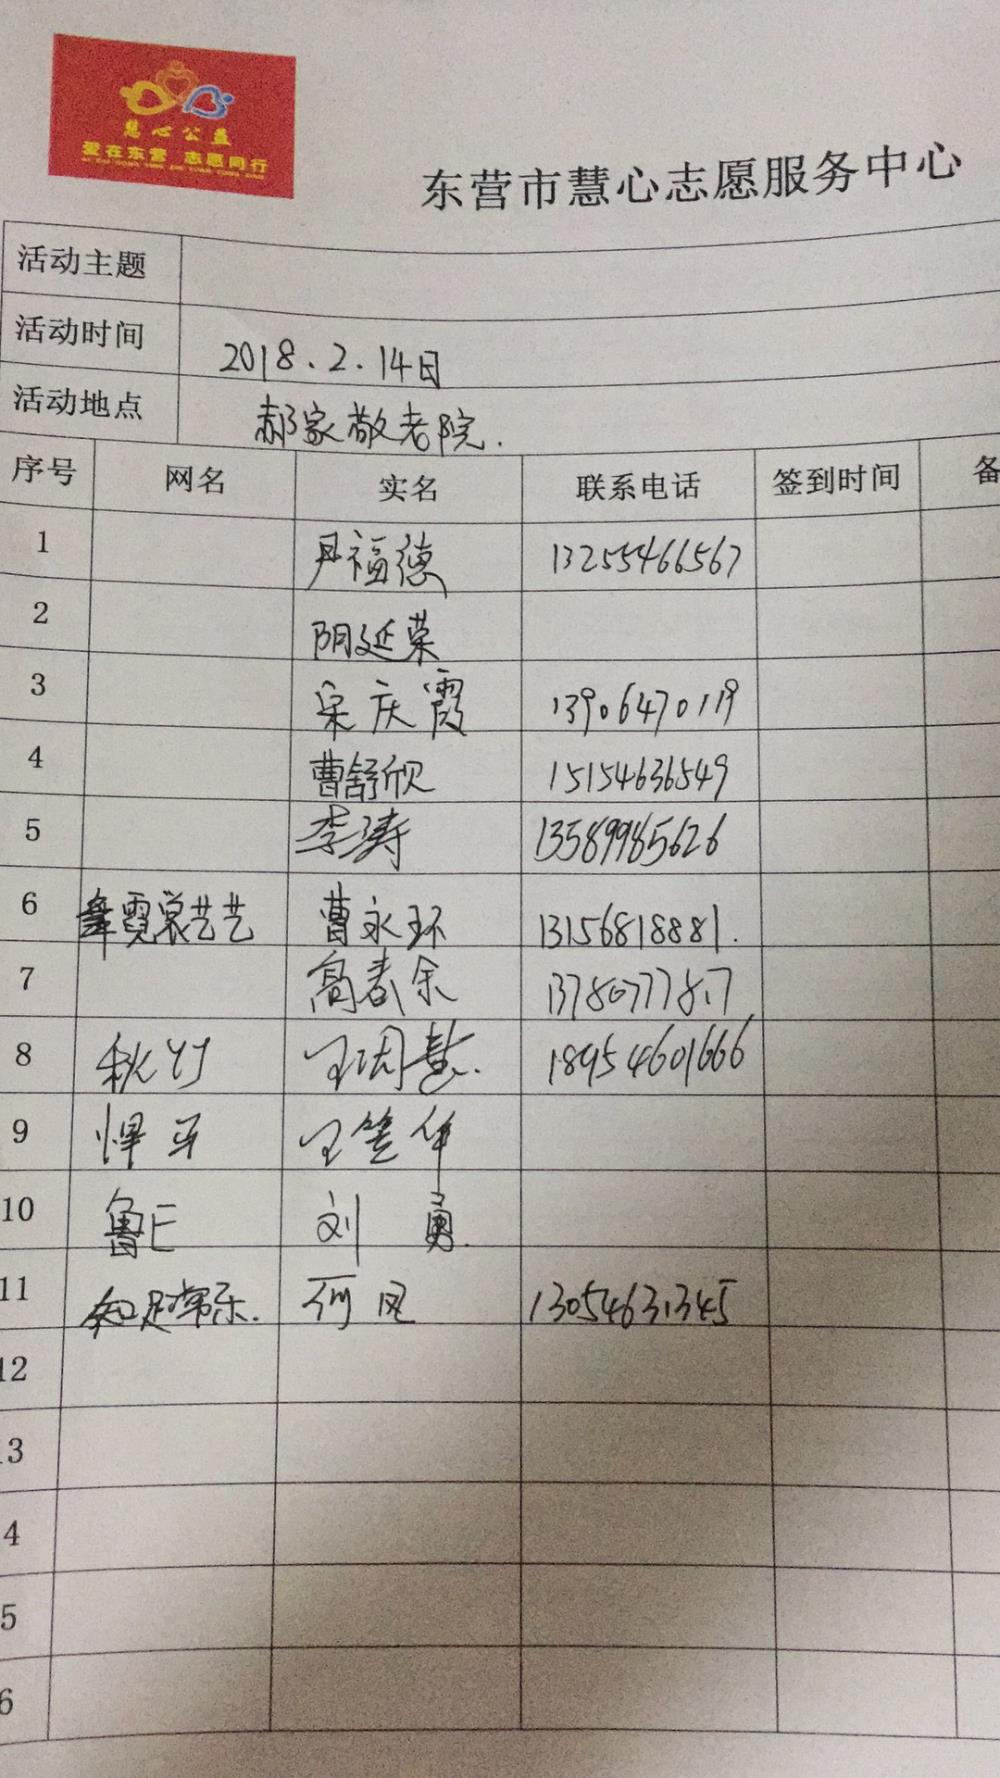 慧心公益
爱在东营 志愿同行
东营市慧心志愿服务中心
活动主题
活动时间 2018.2.14日
活动地点 郝家敬老院.
序号 网名 实名 联系电话 签到时间 备
1 尹福德 13255466567
2 阴延荣
3 宋庆霞 13906470119
4 曹舒欣 15154636549
5 李涛 13589985626
6 舞霓裳艺艺 曹永环 13156818881.
7 高春余
8 秋竹 王周慧. 18954601666
9 悍马 王笠华
10 鲁E 刘勇.
11 知足常乐. 何凤 13054631345
12
13
4
5
6